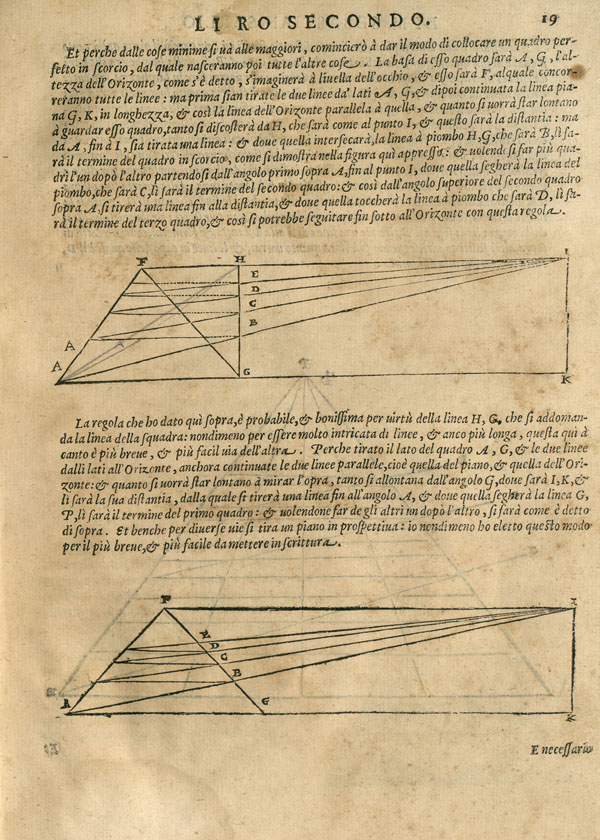 LI RO SECONDO. 19
Et perche dalle cose minime si uà alle maggiori, comincierò à dar il modo di collocare un quadro per-
fetto in scorcio, dal quale nasceranno poi tutte l'altre cose. La basa di esso quadro sarà A, G, l'al-
tezza dell'Orizonte, come s'è detto, s'imaginerà à liuella dell'occhio, & esso sarà F, al quale concor-
reranno tutte le linee: ma prima sian tirate le due linee da' lati A, G, & dipoi continuata la linea pia-
na G, K, in longhezza, & così la linea dell'Orizonte parallela à quella, & quanto si uorrà star lontano
à guardar esso quadro, tanto si discosterà da H, che sarà come al punto I, & questo sarà la distantia: ma
da A, fin à I, sia tirata una linea: & doue quella intersecarà, la linea à piombo H, G, che sarà B, lì sa-
rà il termine del quadro in scorcio, come si dimostra nella figura quì appresso: & uolendo si far più qua-
dri l'un dopò l'altro partendosi dall'angolo primo sopra A, fin al punto I, doue quella segherà la linea del
piombo, che sarà C, lì sarà il termine del secondo quadro: & così dall'angolo superiore del secondo quadro
sopra A. si tirerà una linea fin alla distantia, & doue quella toccherà la linea à piombo che sarà D, lì sa-
rà il termine del terzo quadro, & così si potrebbe seguitare fin sotto all'Orizonte con questa regola.
F H I
E
D
C
A B
A G K
La regola che ho dato quì sopra, è probabile, & bonissima per uirtù della linea H, G, che si addoman-
da la linea della squadra: nondimeno per essere molto intricata di linee, & anco più longa, questa quì à
canto è più breue, & più facil uia dell'altra. Perche tirato il lato del quadro A, G, & le due linee
dalli lati all'Orizonte, anchora continuate le due linee parallele, cioè quella del piano, & quella dell'Ori-
zonte: & quanto si uorrà star lontano à mirar l'opra, tanto si allontana dall'angolo G, doue sarà I, K, &
lì sarà la sua distantia, dalla quale si tirerà una linea fin all'angolo A, & doue quella segherà la linea G,
P, lì sarà il termine del primo quadro: & uolendone far de gli altri un dopò l'altro, si farà come è detto
di sopra. Et benche per diuerse uie si tira un piano in prospettiua: io nondimeno ho eletto questo modo
per il più breue, & più facile da mettere in scrittura.
P I
E
D
C
B
A G K
E necessario